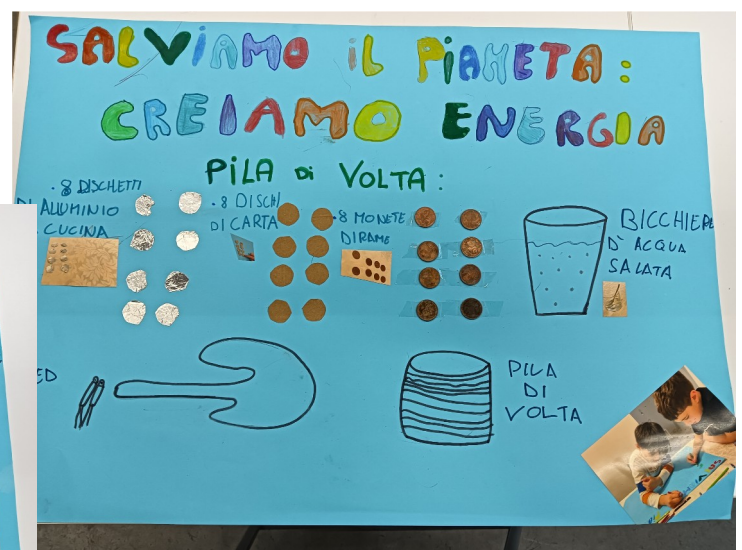 SALVIAMO iL PiANETA:
CREIAMO ENERGIA
PiLA Di VOLTA:
. 8 DISCHETTI
DI ALLUMINIO
CUCINA
. 8 DISCHI
DI CARTA
. 8 MONETE
DI RAME
BICCHIERE
D' ACQUA
SALATA
ED
PILA
DI
VOLTA